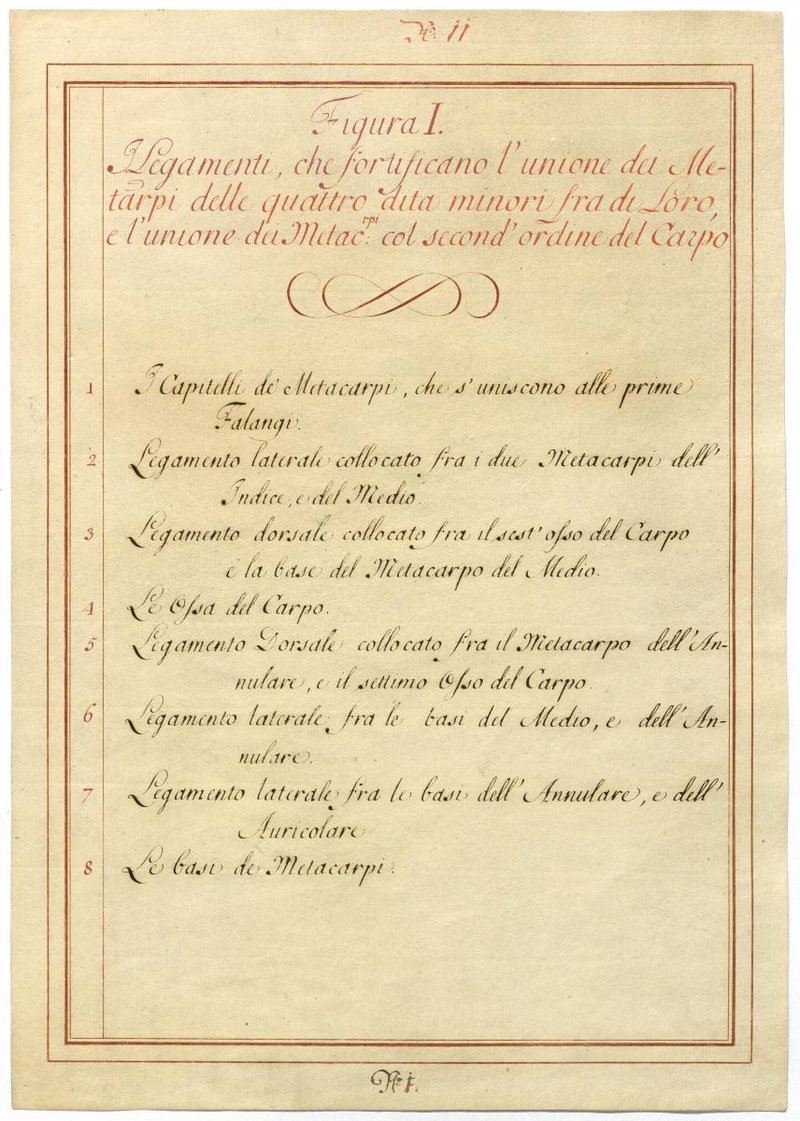 N.º 11
Figura I.
I Legamenti, che fortificano l'unione dei Me-
tarpi delle quattro dita minori fra di Loro,
e l'unione dei Metac.rpi col second' ordine del Carpo
1 I Capitelli de' Metacarpi, che s'uniscono alle prime
Falangi.
2 Legamento laterale collocato fra i due Metacarpi dell'
Indice, e del Medio.
3 Legamento dorsale collocato fra il sest' osso del Carpo
e la base del Metacarpo del Medio.
4 Le Ossa del Carpo.
5 Legamento Dorsale collocato fra il Metacarpo dell' An-
nulare, e il settimo Osso del Carpo.
6 Legamento laterale fra le basi del Medio, e dell' An-
nulare.
7 Legamento laterale fra le basi dell' Annulare, e dell'
Auricolare
8 Le basi de Metacarpi.
N.º 1.